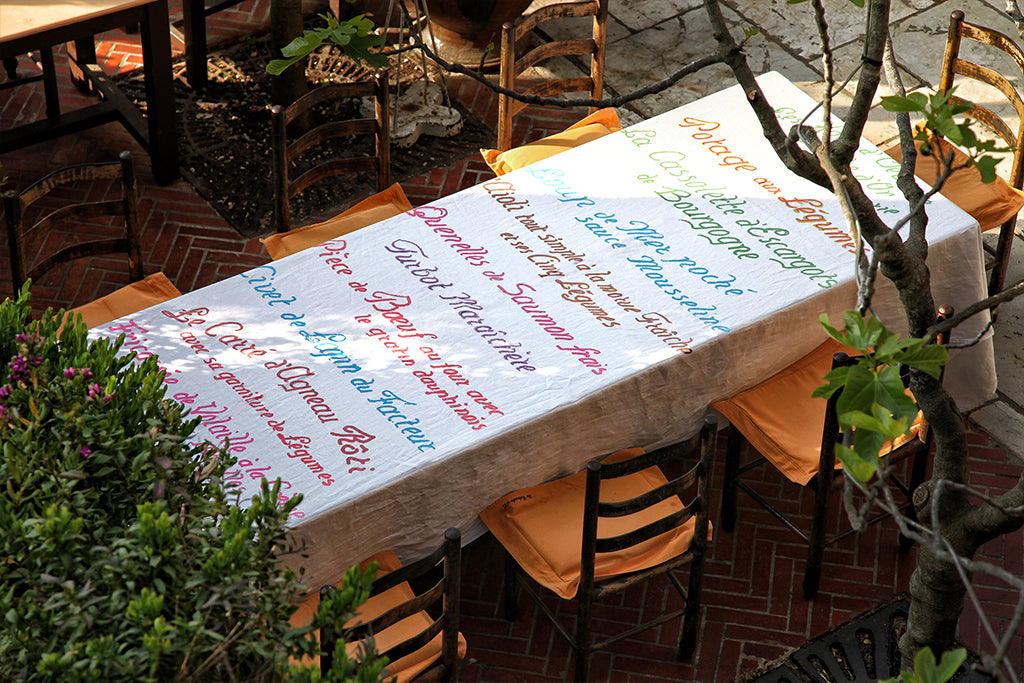 Potage aux Légumes
La Cassolette d'Escargots
de Bourgogne
Loup de Mer poché
sauce Mousseline
Aïoli tout simple à la morue Fraîche
et ses Cinq Légumes
Quenelles de Saumon frais
Turbot Maraîchère
Pièce de Bœuf au four avec
le gratin dauphinois
Civet de Lapin du Facteur
Le Carré d'Agneau Rôti
avec sa garniture de Légumes
de Volaille à la